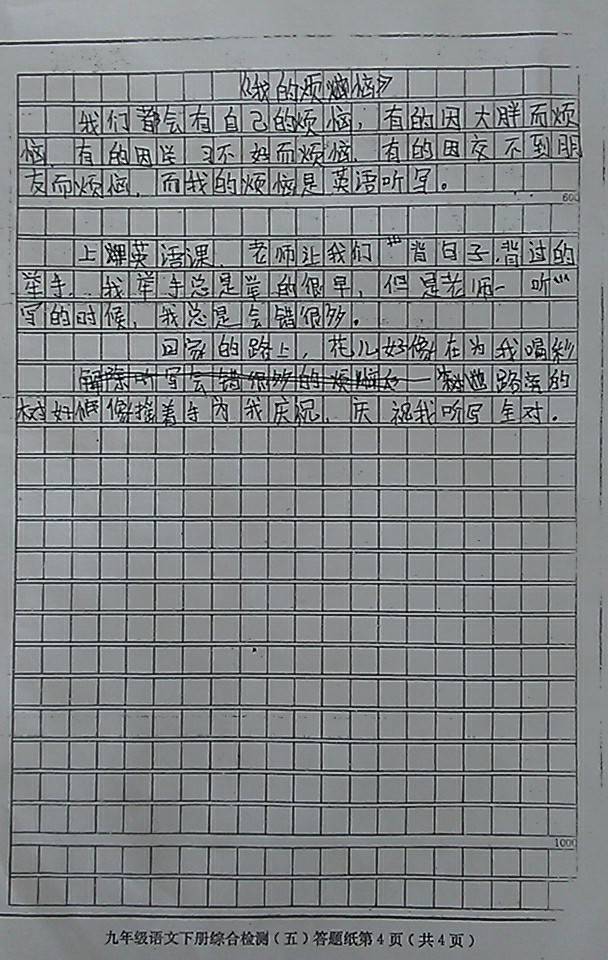 《我的烦恼》
我们都会有自己的烦恼，有的因太胖而烦
恼，有的因学习不好而烦恼，有的因交不到朋
友而烦恼，而我的烦恼是英语听写。
600
上课英语课，老师让我们“背日子，背过的
举手，我举手总是举的很早，但是老师一听
写的时候，我总是会错很多。
回家的路上，花儿好像在为我喝彩
路旁的
树好像在摇着手为我庆祝，庆祝我听写全对。
1000
九年级语文下册综合检测（五）答题纸第4页（共4页）